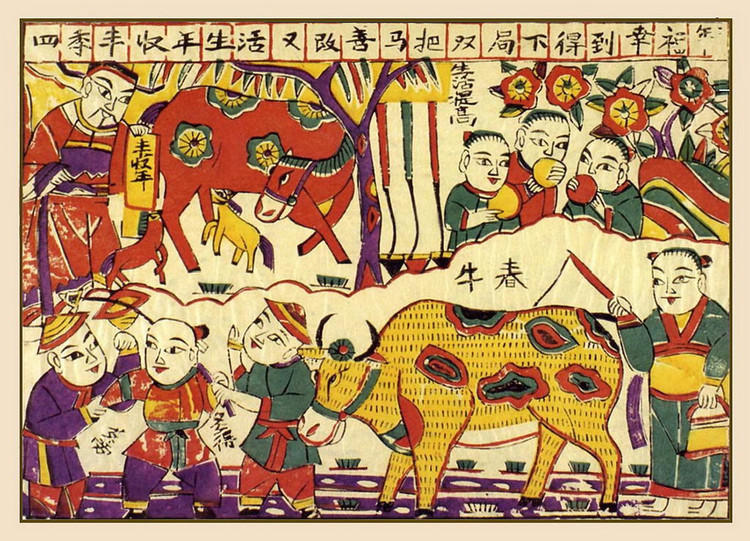 四季丰收年生活又改善马把双局下得到幸福年
生活提高
丰收年
春牛